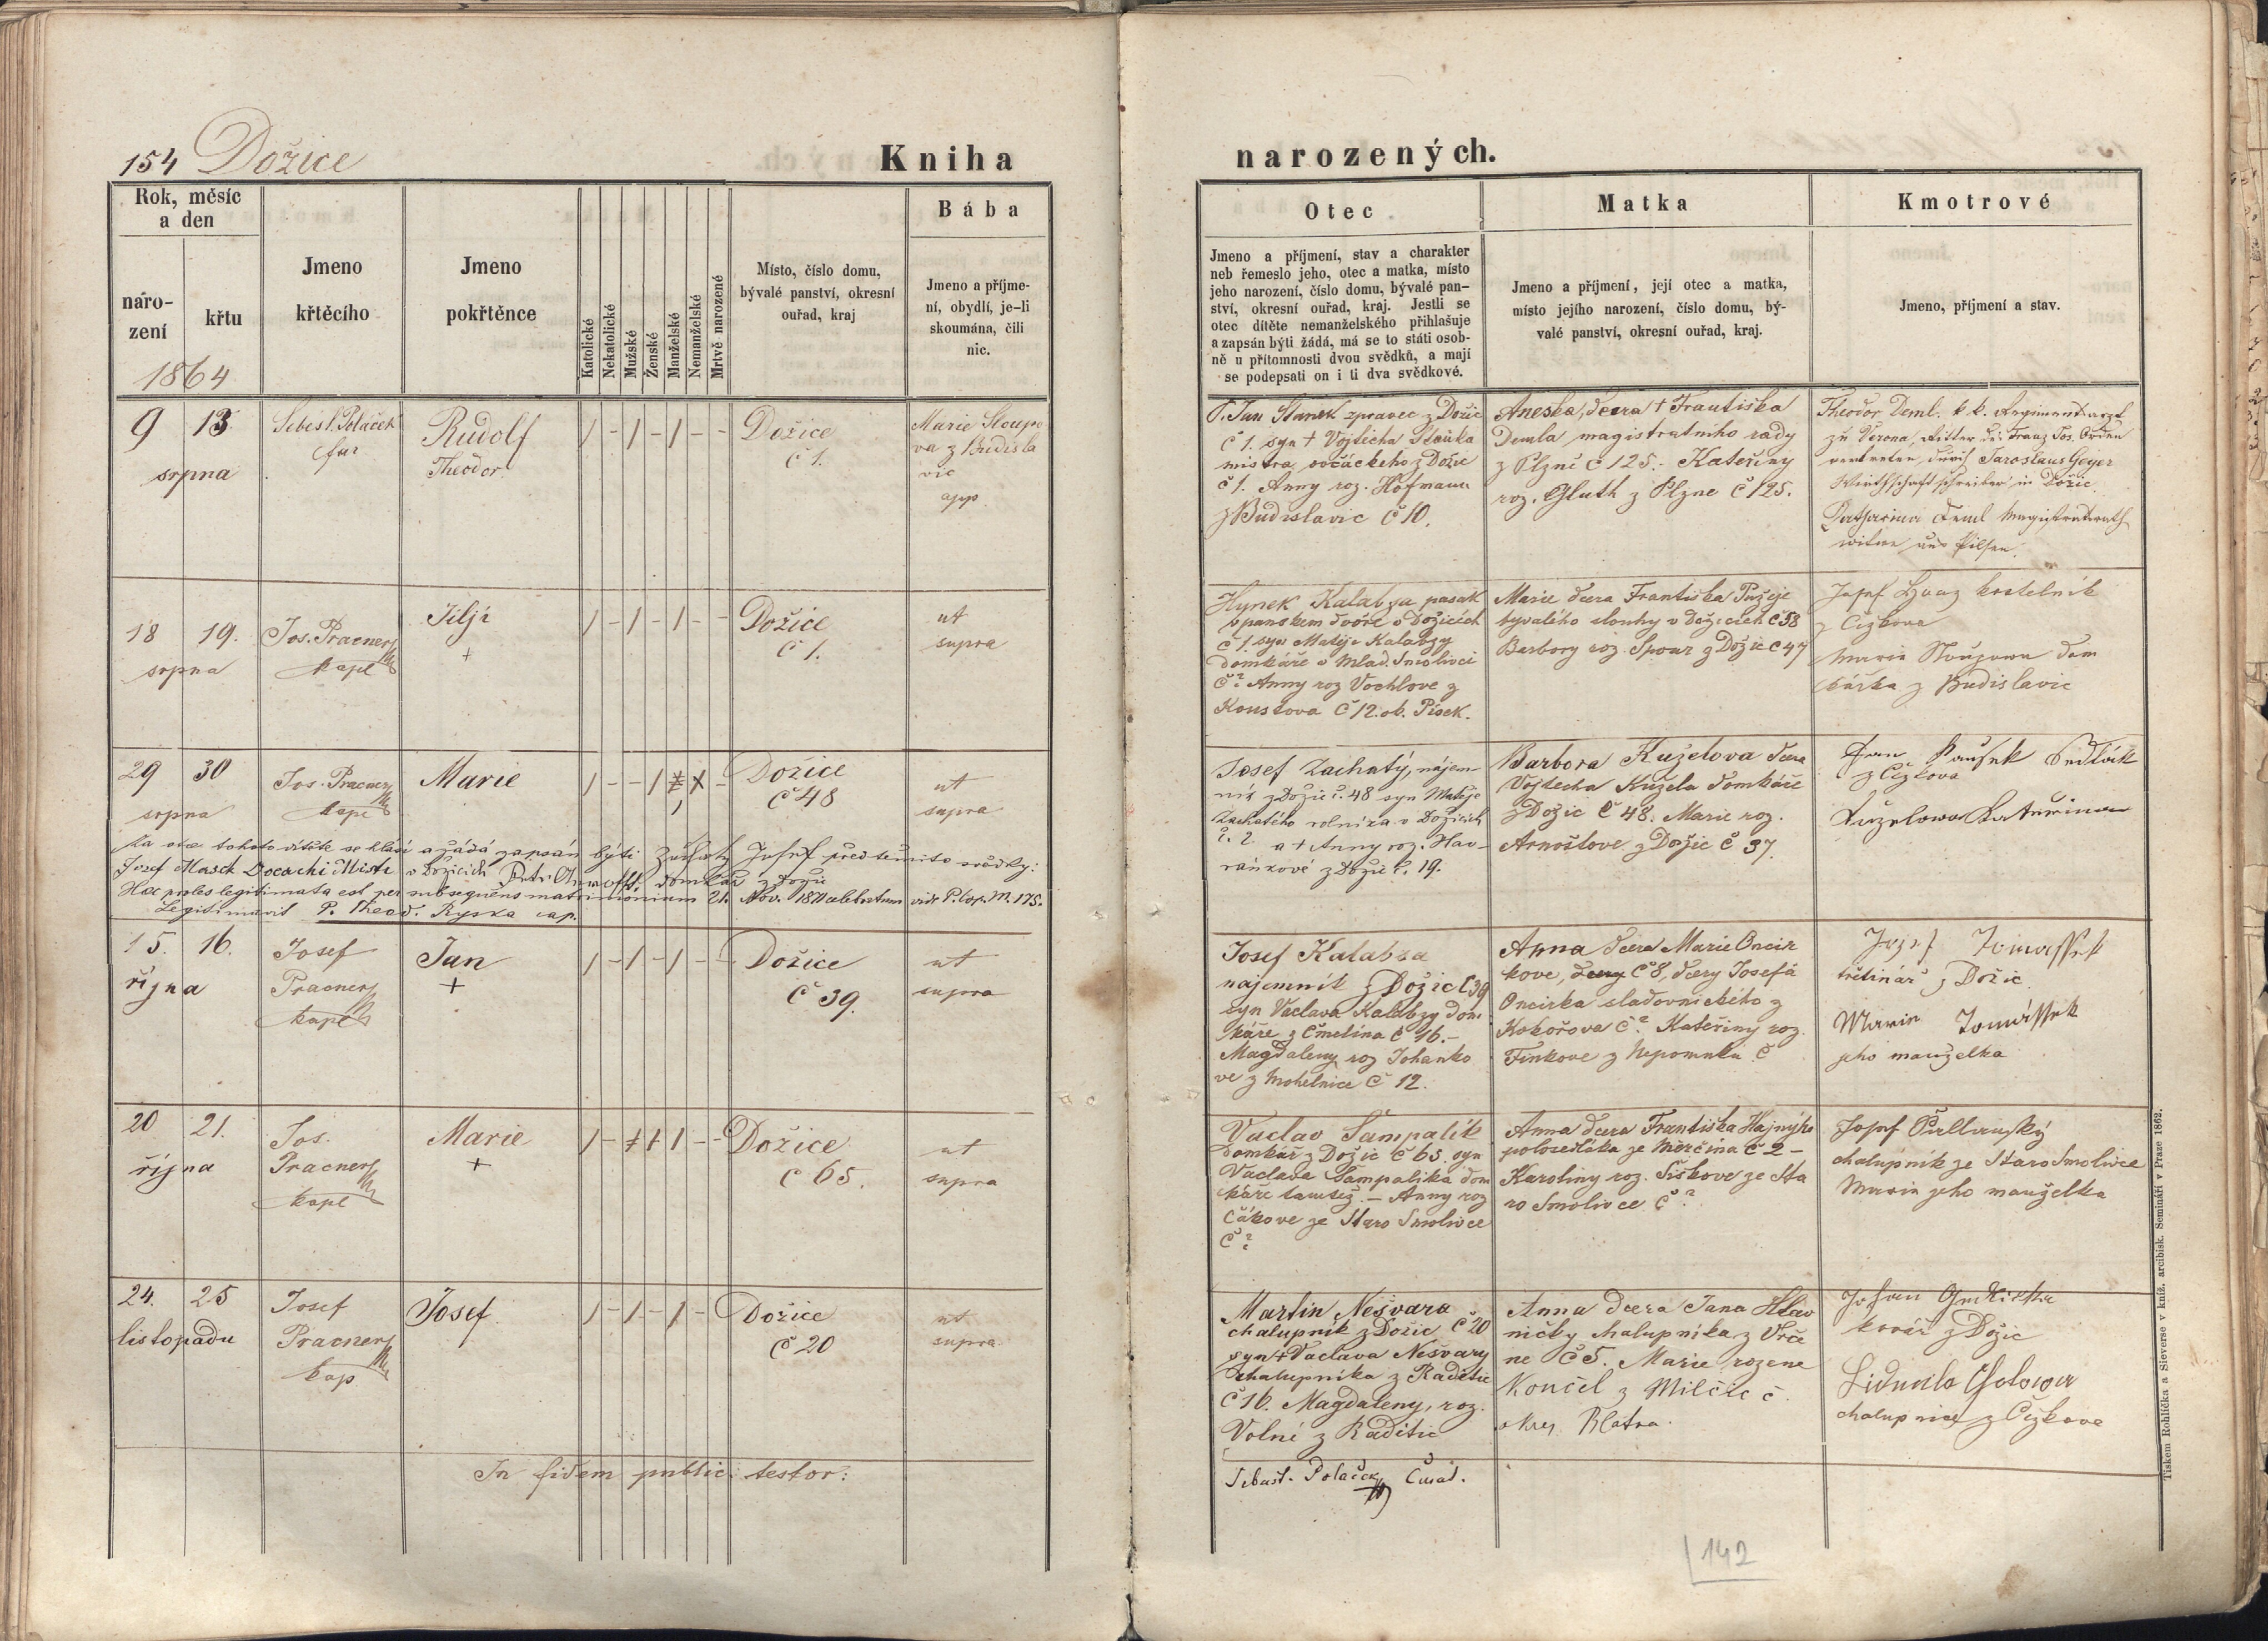 154 Dožice
Kniha
narozených.
Rok, měsíc
a den
naro-
zení
křtu
1864
Jmeno
křtěcího
Jmeno
pokřtěnce
Katolické
Nekatolické
Mužské
Ženské
Manželské
Nemanželské
Mrtvě narozené
Místo, číslo domu,
bývalé panství, okresní
ouřad, kraj
Bába
Jmeno a příjme-
ní, obydlí, je-li
skoumána, čili
nic.
Otec
Jmeno a příjmení, stav a charakter
neb řemeslo jeho, otec a matka, místo
jeho narození, číslo domu, bývalé pan-
ství, okresní ouřad, kraj. Jestli se
otec dítěte nemanželského přihlašuje
a zapsán býti žádá, má se to státi osob-
ně u přítomnosti dvou svědků, a mají
se podepsati on i ti dva svědkové.
Matka
Jmeno a příjmení, její otec a matka,
místo jejího narození, číslo domu, bý-
valé panství, okresní ouřad, kraj.
Kmotrové
Jmeno, příjmení a stav.
9 13
srpna
Sebest. Poláček
far
Rudolf
Theodor
/ - / - / - -
Dožice
č 1.
Marie Sloupo
va z Budisla
vic
app.
P. Jan Stanek spravec z Dožic
č 1. syn + Vojticha Staňka
mistra ovčáckeho z Dožic
č 1. Anny roz. Hofmann
z Budislavic č 10.
Aneska, dcera + Františka
Demla magistratního rady
z Plzně č 125. - Kateřiny
roz. Gluth z Plzne č 125.
Theodor Deml. k. k. Regimentsarzt
zu Verona, Ritter des Franz Jos. Orden
vertreten durch Jaroslaus Geyer
Wirthschaftschreiber in Dožic.
Katharina Deml Magistratsrath
witwe aus Pilsen.
18 19.
srpna
Jos. Pracner
kapl
Jiljí
+
/ - / - / - -
Dožice
č 1.
ut
supra
Hynek Kalabza pasák
v panskem dvoře v Dožicích
č 1. syn Matěje Kalabzy
domkáře v Mlad. Smolivci
č? Anny roz Vochlove z
č 12. ob. Písek.
Marie dcera Františka
byvalého slouhy v Dožicich č 38
Barbory roz. Spour z Dožic č 47
Josef kostelník
z Čížkova
Marie dom
kářka z Budislavic
29 30
srpna
Jos. Pracner
kapl
Marie
Dožice
č 48
ut
supra
Josef Zachatý, nájem-
ník z Dožic č. 48 syn Matěje
Zachatého rolníka v Dožicích
č. 2 a + Anny roz. Hav-
ránkové z Dožic č. 19.
Barbora Kuželova dcera
Vojtecha Kužela domkáře
z Dožic č 48. Marie roz.
Arnoštove z Dožic č 37.
Jan Paušek Sedlák
z Čížkova
Kuzelowa Katerina
Za otce tohoto dítěte se hlásí a žádá zapsán býti Zachaty Josef před těmito svědky:
Josef Masch Mistr v Dožicích domkář z Dožic
Haec proles legitimata est per subsequens matrimonium 21. Nov. 1871 celebratum vide P. Cop. M. 175.
Legitimavit P. Theod. Ryska cap.
15. 16.
října
Josef
Pracner
kapl
Jan
+
/ - / - / - -
Dožice
č 39.
ut
supra
Josef Kalabza
najemnik z Dožic č 39
syn Vaclava Kalabzy dom
káře z Čmelína č 46. -
Magdaleny roz Johanko
ve z Mohelnice č 12.
Anna dcera Marie Oncir
kove, č 8, dcery Josefa
Oncirka sladovnického z
Kokořova č? Kateřiny roz.
Finkove z Nepomuku č
Josef Tomassek
třetinář z Dožic.
Marie Tomássek
jeho manželka
20 21.
října
Jos.
Pracner
kapl
Marie
+
Dožice
č 65.
ut
supra
Vaclav Sampalík
domkár z Dožic č 65. syn
Vaclava Sampalíka dom
káře tamtéž. - Anny roz
Čákove ze Staro Smolivce
č?
Anna dcera Františka Hajnýho
polosedláka ze Měrčína č 2 -
Karoliny roz. Siškove ze Sta
ro Smolivce č?
Josef
chalupník ze Staro Smolivce
Marie jeho manželka
24. 25
listopadu
Josef
Pracner
kap
Josef
/ - / - / -
Dožice
č 20
ut
supra
Martin Nešvara
chalupník z Dožic č 20
syn + Vaclava Nešvary
chalupníka z Radětic
č 16. Magdaleny, roz.
Volní z Radětic
Anna dcera Jana Hlav
ničky chalupníka z Vrče
ne č 5. Marie rozene
Končel z Milčic č.
okres Blatna.
Johan
kovář z Dožic
Lidmila
chalupnice z Čížkova
In fidem public. testor:
Sebast. Polaček Curat.
142
Tiskem Rohlíčka a Sieverse v kníž. arcibisk. Semináři v Praze 1862.